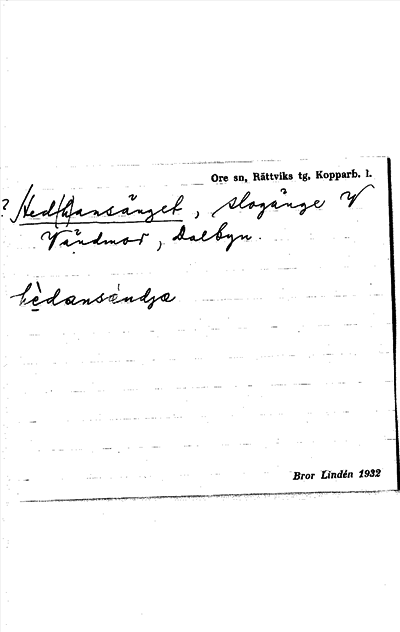 Ore sn, Rättviks tg, Kopparb. l.
? Hed(h)ansänget, slogänge V
Vändmor, Dalbyn.
hèdansǽndjæ
Bror Lindén 1932